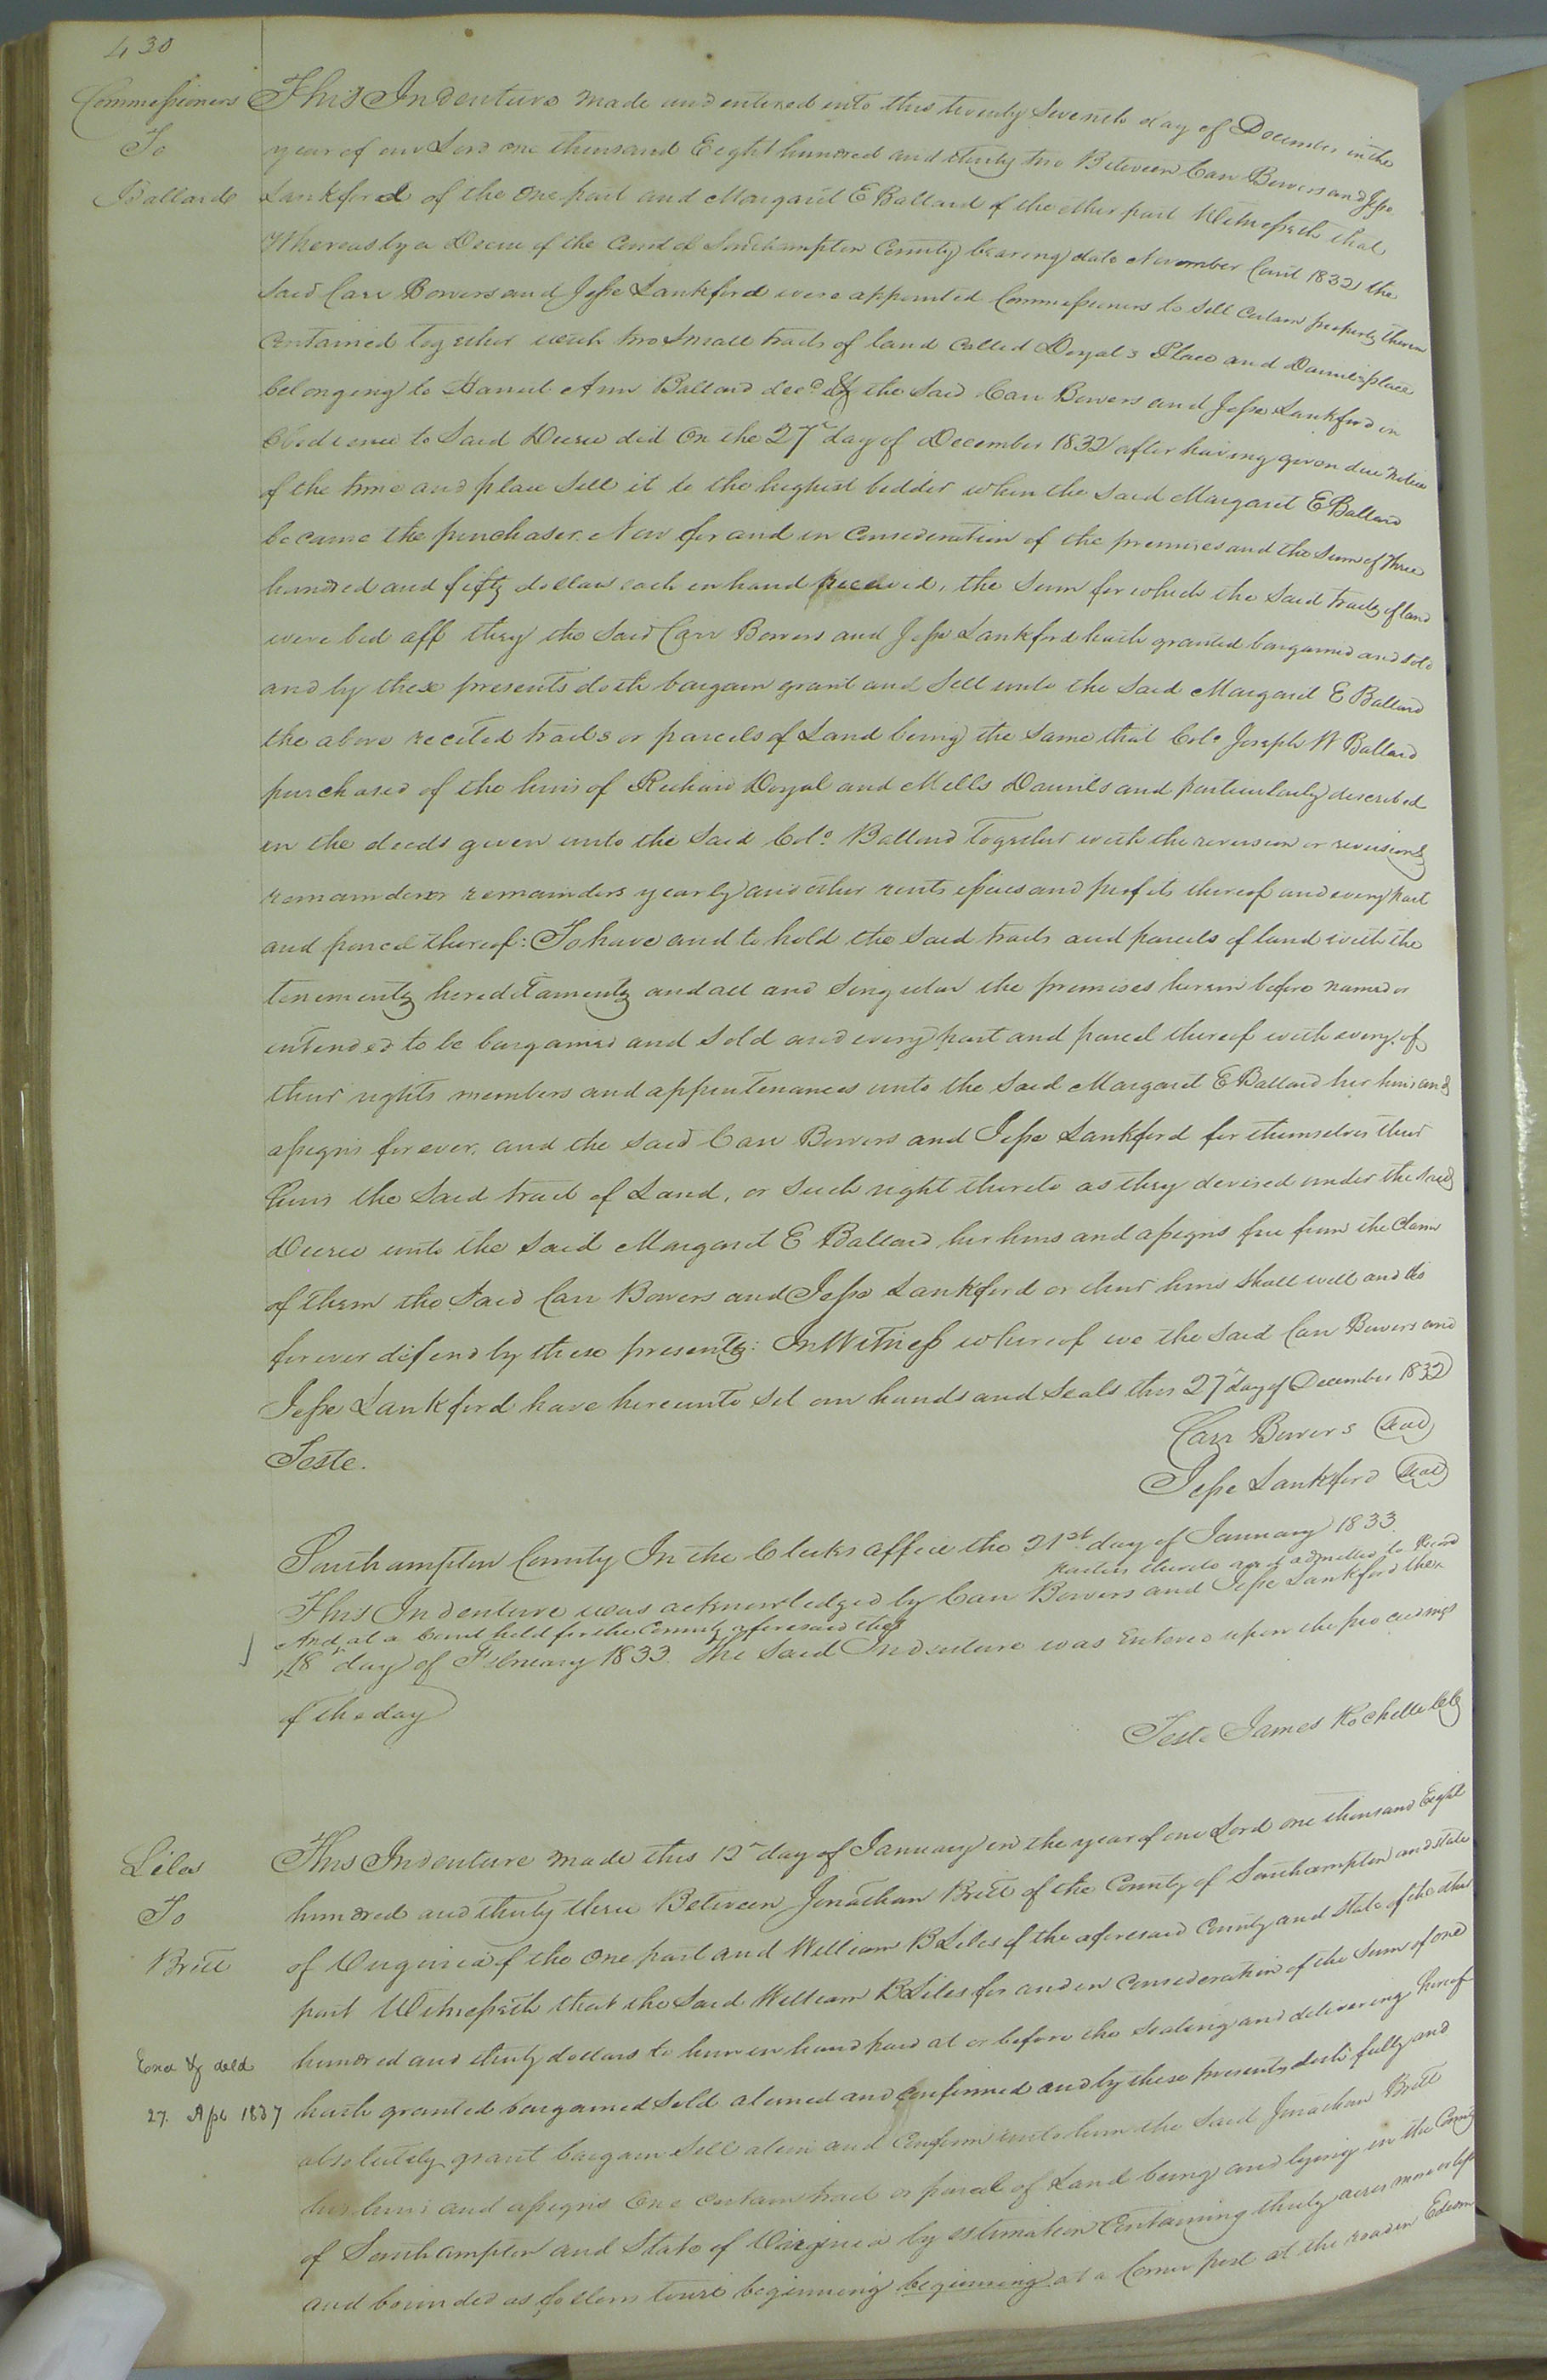 430
Commissioners
To
Ballard
This Indenture made and entered into this twenty Seventh day of December in the
year of our Lord one thousand Eight hundred and thirty two Between Carr Bowers and Jesse
Lankford of the one part and Margaret E Ballard of the other part Witnesseth that
Whereas by a Decree of the Court of Southampton County bearing date November Court 1832 the
Said Carr Bowers and Jesse Lankford were appointed Commissioners to Sell Certain property therein
Contained together with two Small tracts of land Called Doyal's Place and Daniels place
belonging to Harriet Ann Ballard decd & the Said Carr Bowers and Jesse Lankford in
Obedience to Said Decree did On the 27th day of December 1832 after having given due Notice
of the time and place Sell it to the highest bidder when the Said Margaret E Ballard
became the purchaser. Now for and in Consideration of the premises and the Sum of Three
hundred and fifty dollars each in hand received, the Sum for which the Said tracts of land
were bid off they the Said Carr Bowers and Jesse Lankford hath granted bargained and sold
and by these presents doth bargain grant and Sell unto the Said Margaret E Ballard
the above recited tracts or parcels of Land being the Same that Colo Joseph W Ballard
purchased of the heirs of Richard Doyal and Mills Daniels and particularly described
in the deeds given unto the Said Colo. Ballard Together with the reversion or reversions
remainder or remainders yearly and other rents issues and profits thereof and every part
and parcel thereof: To have and to hold the Said tracts and parcels of land with the
tenements hereditaments and all and Singular the premises herein before named or
intended to be bargained and Sold and every part and parcel thereof with every of
their rights members and appurtenances unto the Said Margaret E Ballard her heirs and
assigns forever, and the Said Carr Bowers and Jesse Lankford for themselves their
heirs the Said tract of Land, or Such right thereto as they devised under the Said
Decree unto the Said Margaret E Ballard her heirs and assigns free from the Claim
of Them the Said Carr Bowers and Jesse Lankford or their heirs Shall will and do
forever defend by these presents: In Witness whereof we the Said Carr Bowers and
Jesse Lankford have hereunto Set our hands and Seals this 27th day of December 1832
Carr Bowers Seal
Teste.
Jesse Lankford Seal
Southampton County In the Clerks office the 21st day of January 1833.
parties thereto and admitted to Record
This Indenture was acknowledged by Carr Bowers and Jesse Lankford the
And at a Court held for the County aforesaid the
18th day of February 1833 The Said Indenture was Entered upon the proceedings
of the day
Teste James Rochelle Clk
Liles
To
Britt
This Indenture made this 12th day of January in the year of our Lord one thousand Eight
hundred and thirty three Between Jonathan Britt of the County of Southampton and State
of Virginia of the one part and William B Liles of the aforesaid County and State of the other
part Witnesseth that the Said William B Liles for and in Consideration of the Sum of one
hundred and thirty dollars to him in hand paid at or before the Sealing and delivering hereof
Exd & deld
27. Apl 1837
hath granted bargained Sold aliened and Confirmed and by these presents doth fully and
absolutely grant bargain Sell alien and Confirm unto him the Said Jonathan Britt
his heirs and assigns One certain tract or parcel of Land being and lying in the County
of Southampton and State of Virginia by estimation Containing thirty acres more or less
and bounded as follows towit beginning beginning at a Corner post at the road in Edwin